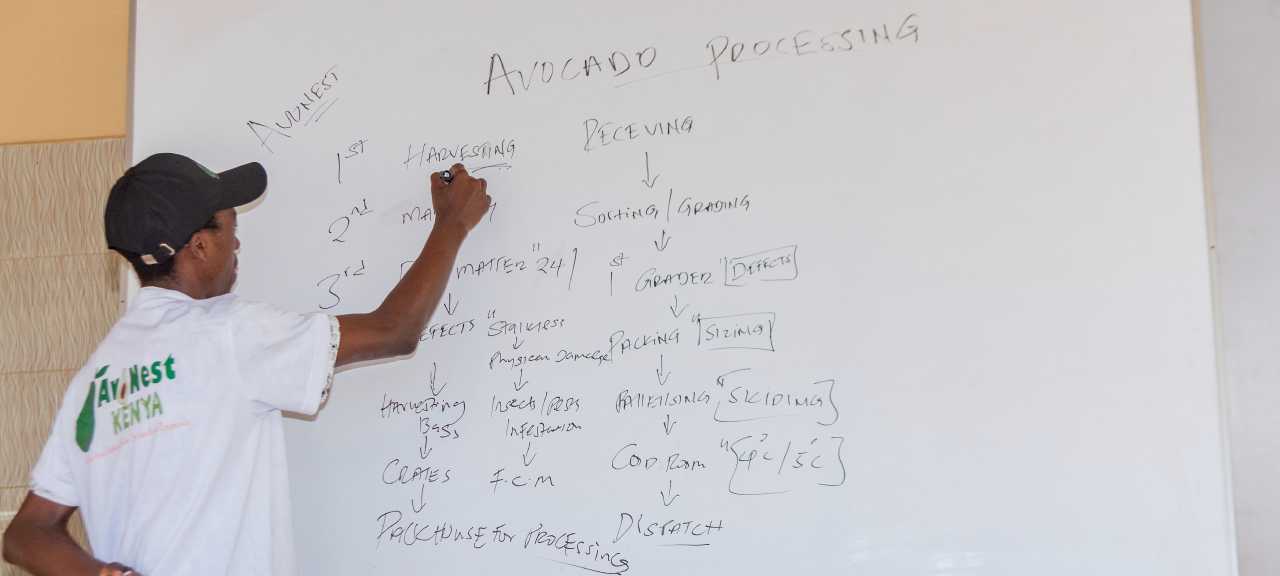 AVOCADO PROCESSING
AVONEST
1st HARVESTING
2nd
3rd MATTER "24
"Stalkness
Physical Damage
HARVESTING BAGS
Insects/Pests Infestation
CRATES
F.C.M
PACKHOUSE FOR PROCESSING
RECEVING
Sorting/GRADING
1st GRADER "DEFECTS
PACKING "SIZING
PALLETISING "SKIDING
COLD ROOM "4°C/5°C
DISPATCH
AvoNest
KENYA